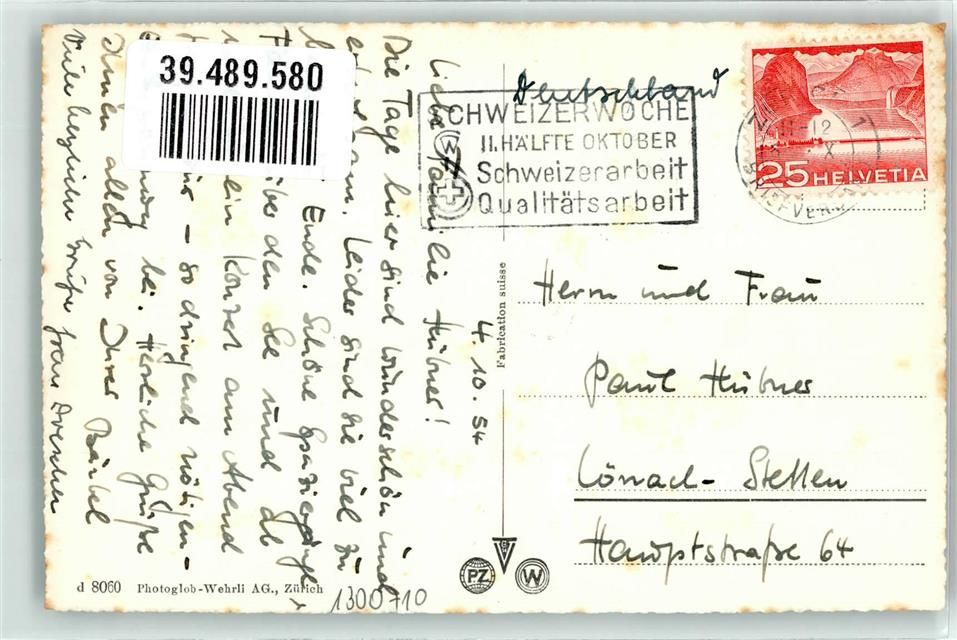 39.489.580
Deutschland
SCHWEIZERWOCHE
II. HÄLFTE OKTOBER
Schweizerarbeit
Qualitätsarbeit
11-12
X
BRIEFVER
25 HELVETIA
4. 10. 54
Liebe Familie Hübner!
Die Tage hier sind wunderschön und
Leider sind sie viel zu
Ende. Schöne Spaziergänge
über den See und
ein Konzert am Abend
für - so dringend nötigen -
bei. Herzliche Grüße
Ihnen allen von Ihrer Bärbel
Viele herzliche Grüße Frau
Fabrication suisse
Herrn und Frau
Paul Hübner
Lörrach - Stetten
Hauptstraße 64
PZ
W
d 8060 Photoglob-Wehrli AG., Zürich
1300710